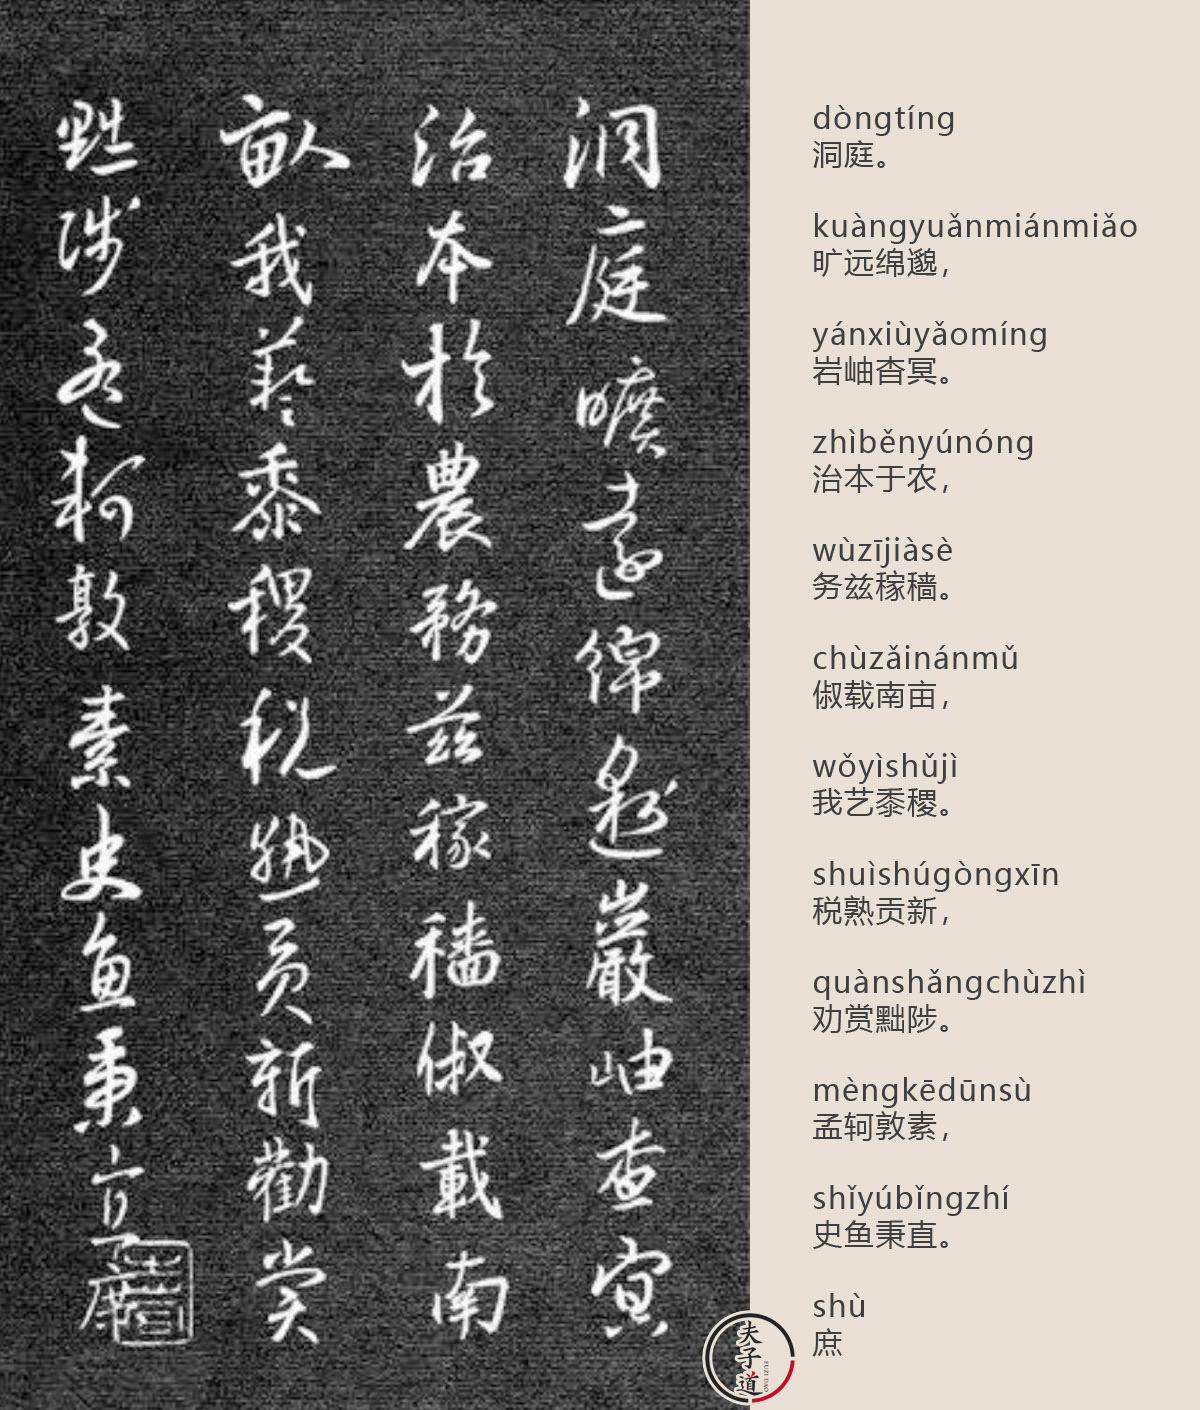 洞庭曠遠綿邈巖岫杳冥
治本於農務茲稼穡俶載南
畝我藝黍稷稅熟貢新勸賞
黜陟孟軻敦素史魚秉直庶
dòngtíng
洞庭。
kuàngyuǎnmiánmiǎo
旷远绵邈，
yánxiùyǎomíng
岩岫杳冥。
zhìběnyúnóng
治本于农，
wùzījiàsè
务兹稼穑。
chùzǎinánmǔ
俶载南亩，
wǒyìshǔjì
我艺黍稷。
shuìshúgòngxīn
税熟贡新，
quànshǎngchùzhì
劝赏黜陟。
mèngkēdūnsù
孟轲敦素，
shǐyúbǐngzhí
史鱼秉直。
shù
庶
夫子道
FUZI DAO